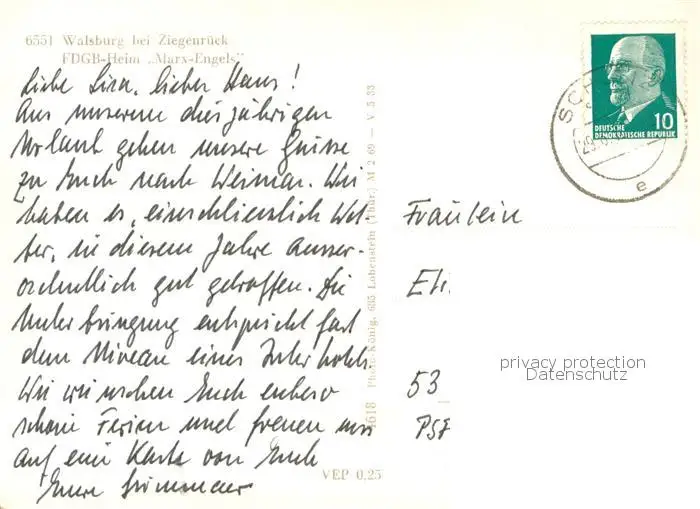 6551 Walsburg bei Ziegenrück
FDGB-Heim „Marx-Engels"
Liebe Lisa, lieber Hans!
Aus unserem diesjährigen
Urlaub gehen unsere Grüsse
zu Euch nach Weimar. Wir
haben es, einschliesslich Wet-
ter, in diesem Jahre ausser-
ordentlich gut getroffen. Die
Unterbringung entspricht fast
dem Niveau eines Interhotels.
Wir wünschen Euch ebenso
schöne Ferien und freuen uns
auf eine Karte von Euch
Eure
VEP 0,25
618 Photo-König, 685 Lobenstein (Thür.) M 2 69 — V 5 33
SCH
e
DEUTSCHE
DEMOKRATISCHE REPUBLIK
10
Fräulein
Eli
53
PSF
privacy protection
Datenschutz